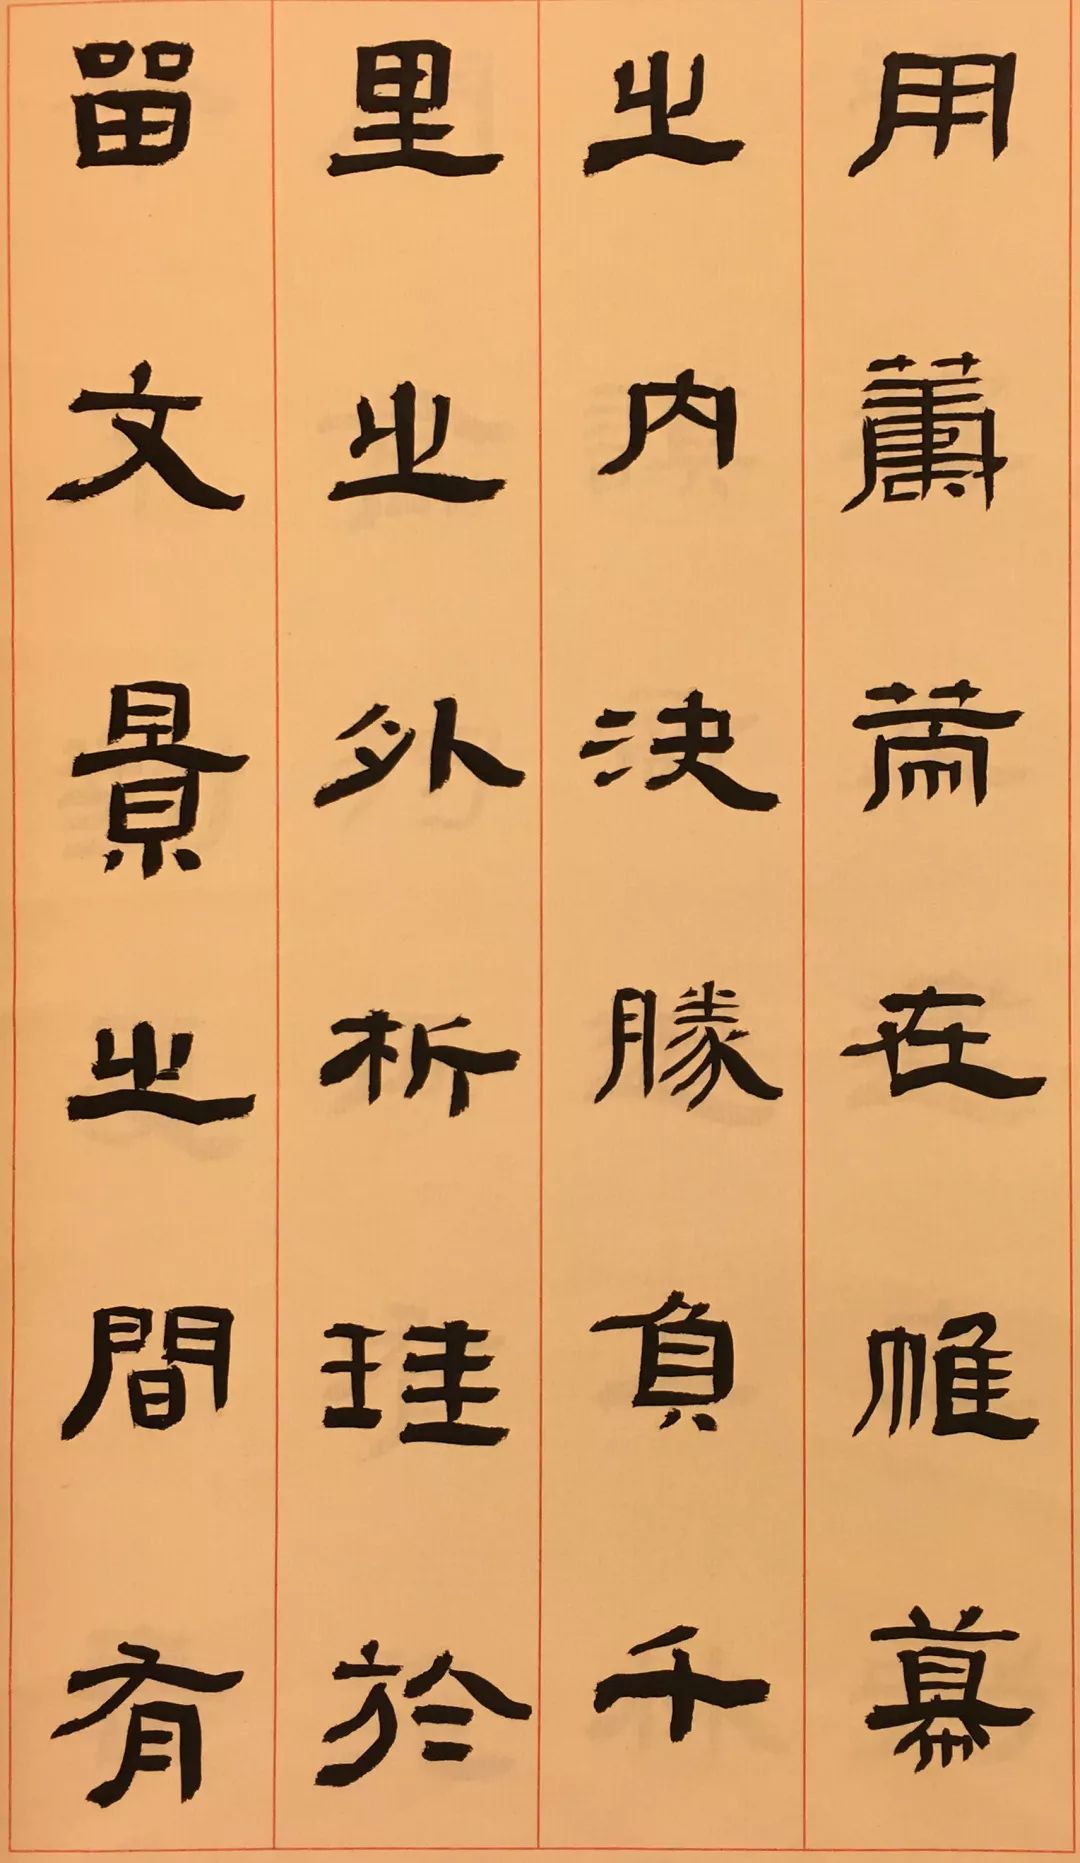 用籌策在帷幕
之内決勝負千
里之外析珪於
留文景之間有